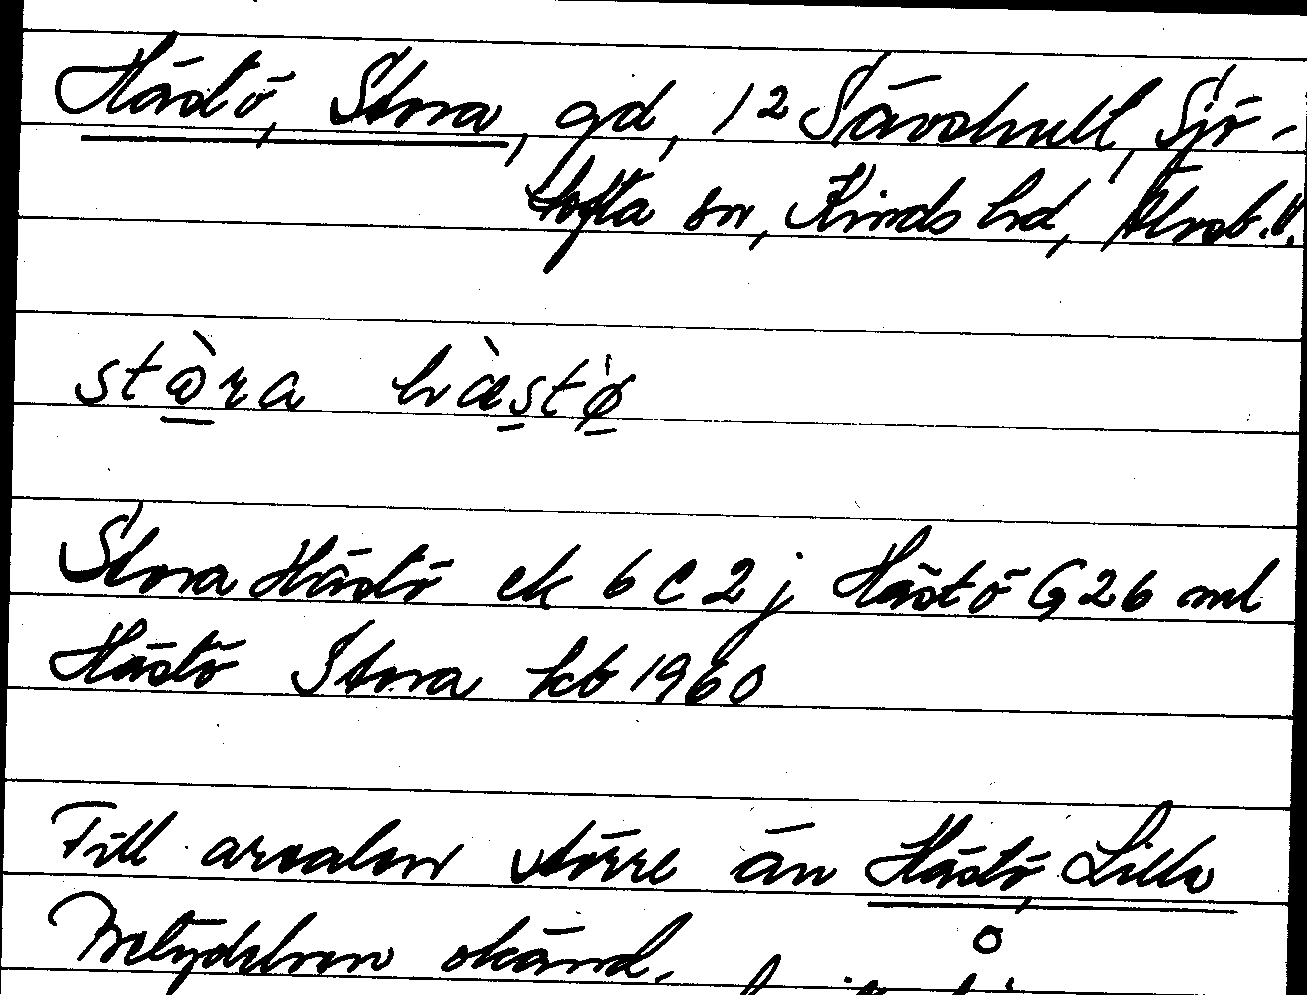 Hästö, Stora, gd, 1² Sävshult, Sjö-
tofta sn, Kinds hd, Älvsb. l.
stɷ̀ra hæ̀stø̀
Stora Hästö ek 6 C 2 j Hästö G26 ml
Hästö Stora kb 1960
Till arealen större än Hästö, Lilla
Betydelsen okänd.